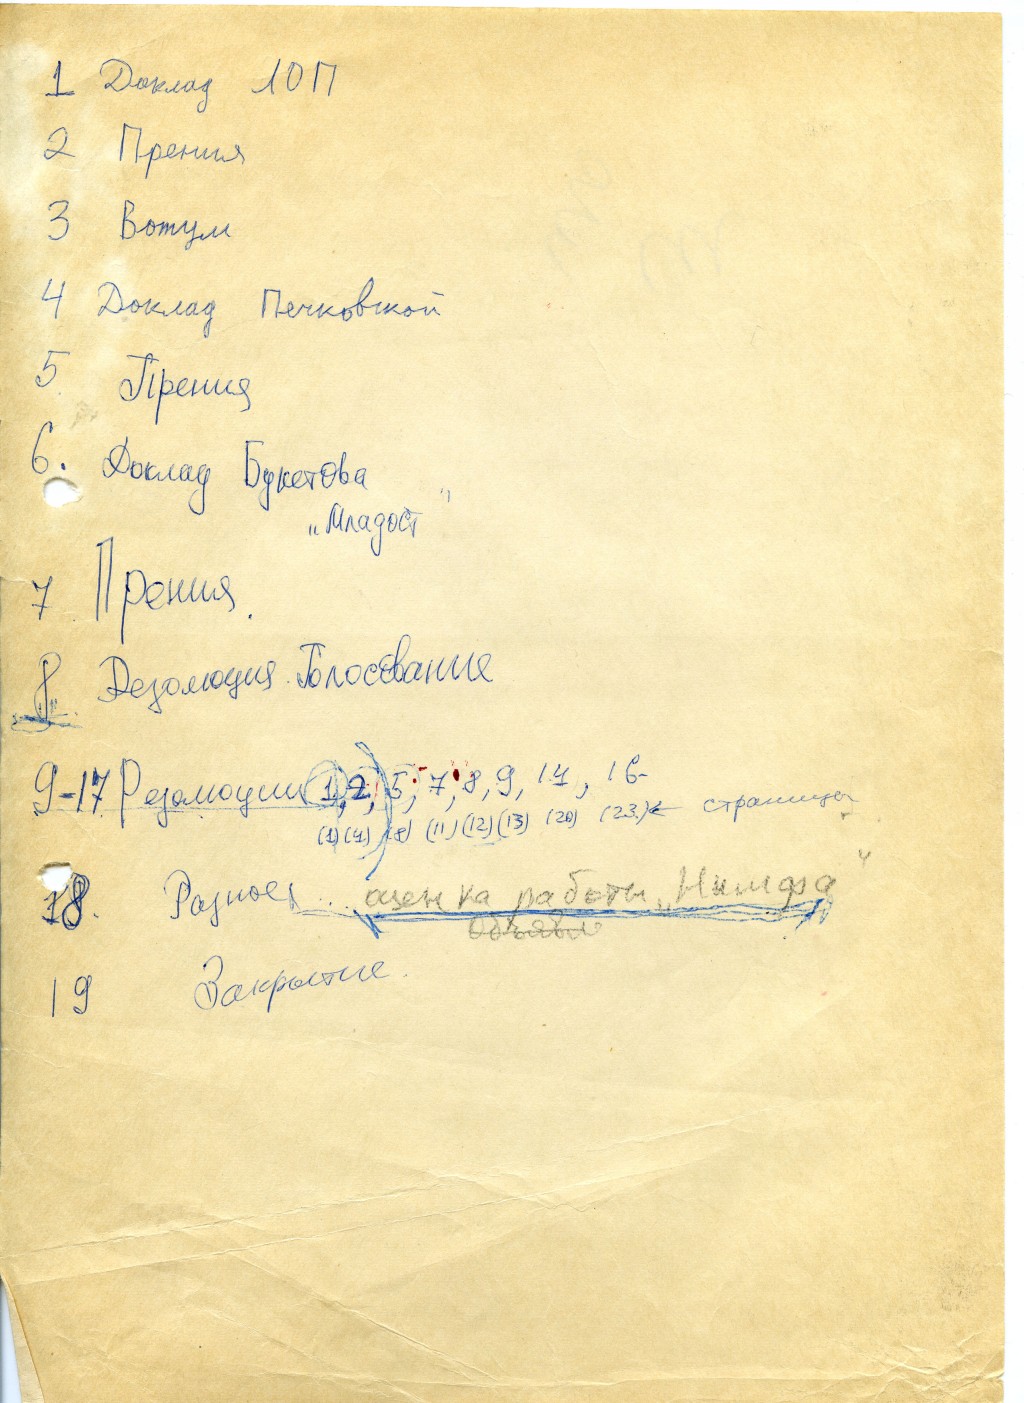 1 Доклад ЮП
2 Прения
3 Вотум
4 Доклад Печковской
5 Прения
6. Доклад Букетова
„Младост"
7 Прения.
8. Резолюция. Голосование
9-17 Резолюции 1, 2, 5, 7, 8, 9, 14, 16
(1) (4) (8) (11) (12) (13) (20) (23) ← страницы
18. Разное ... оценка работы „Нимфа"
Объявле
19 Закрытие.